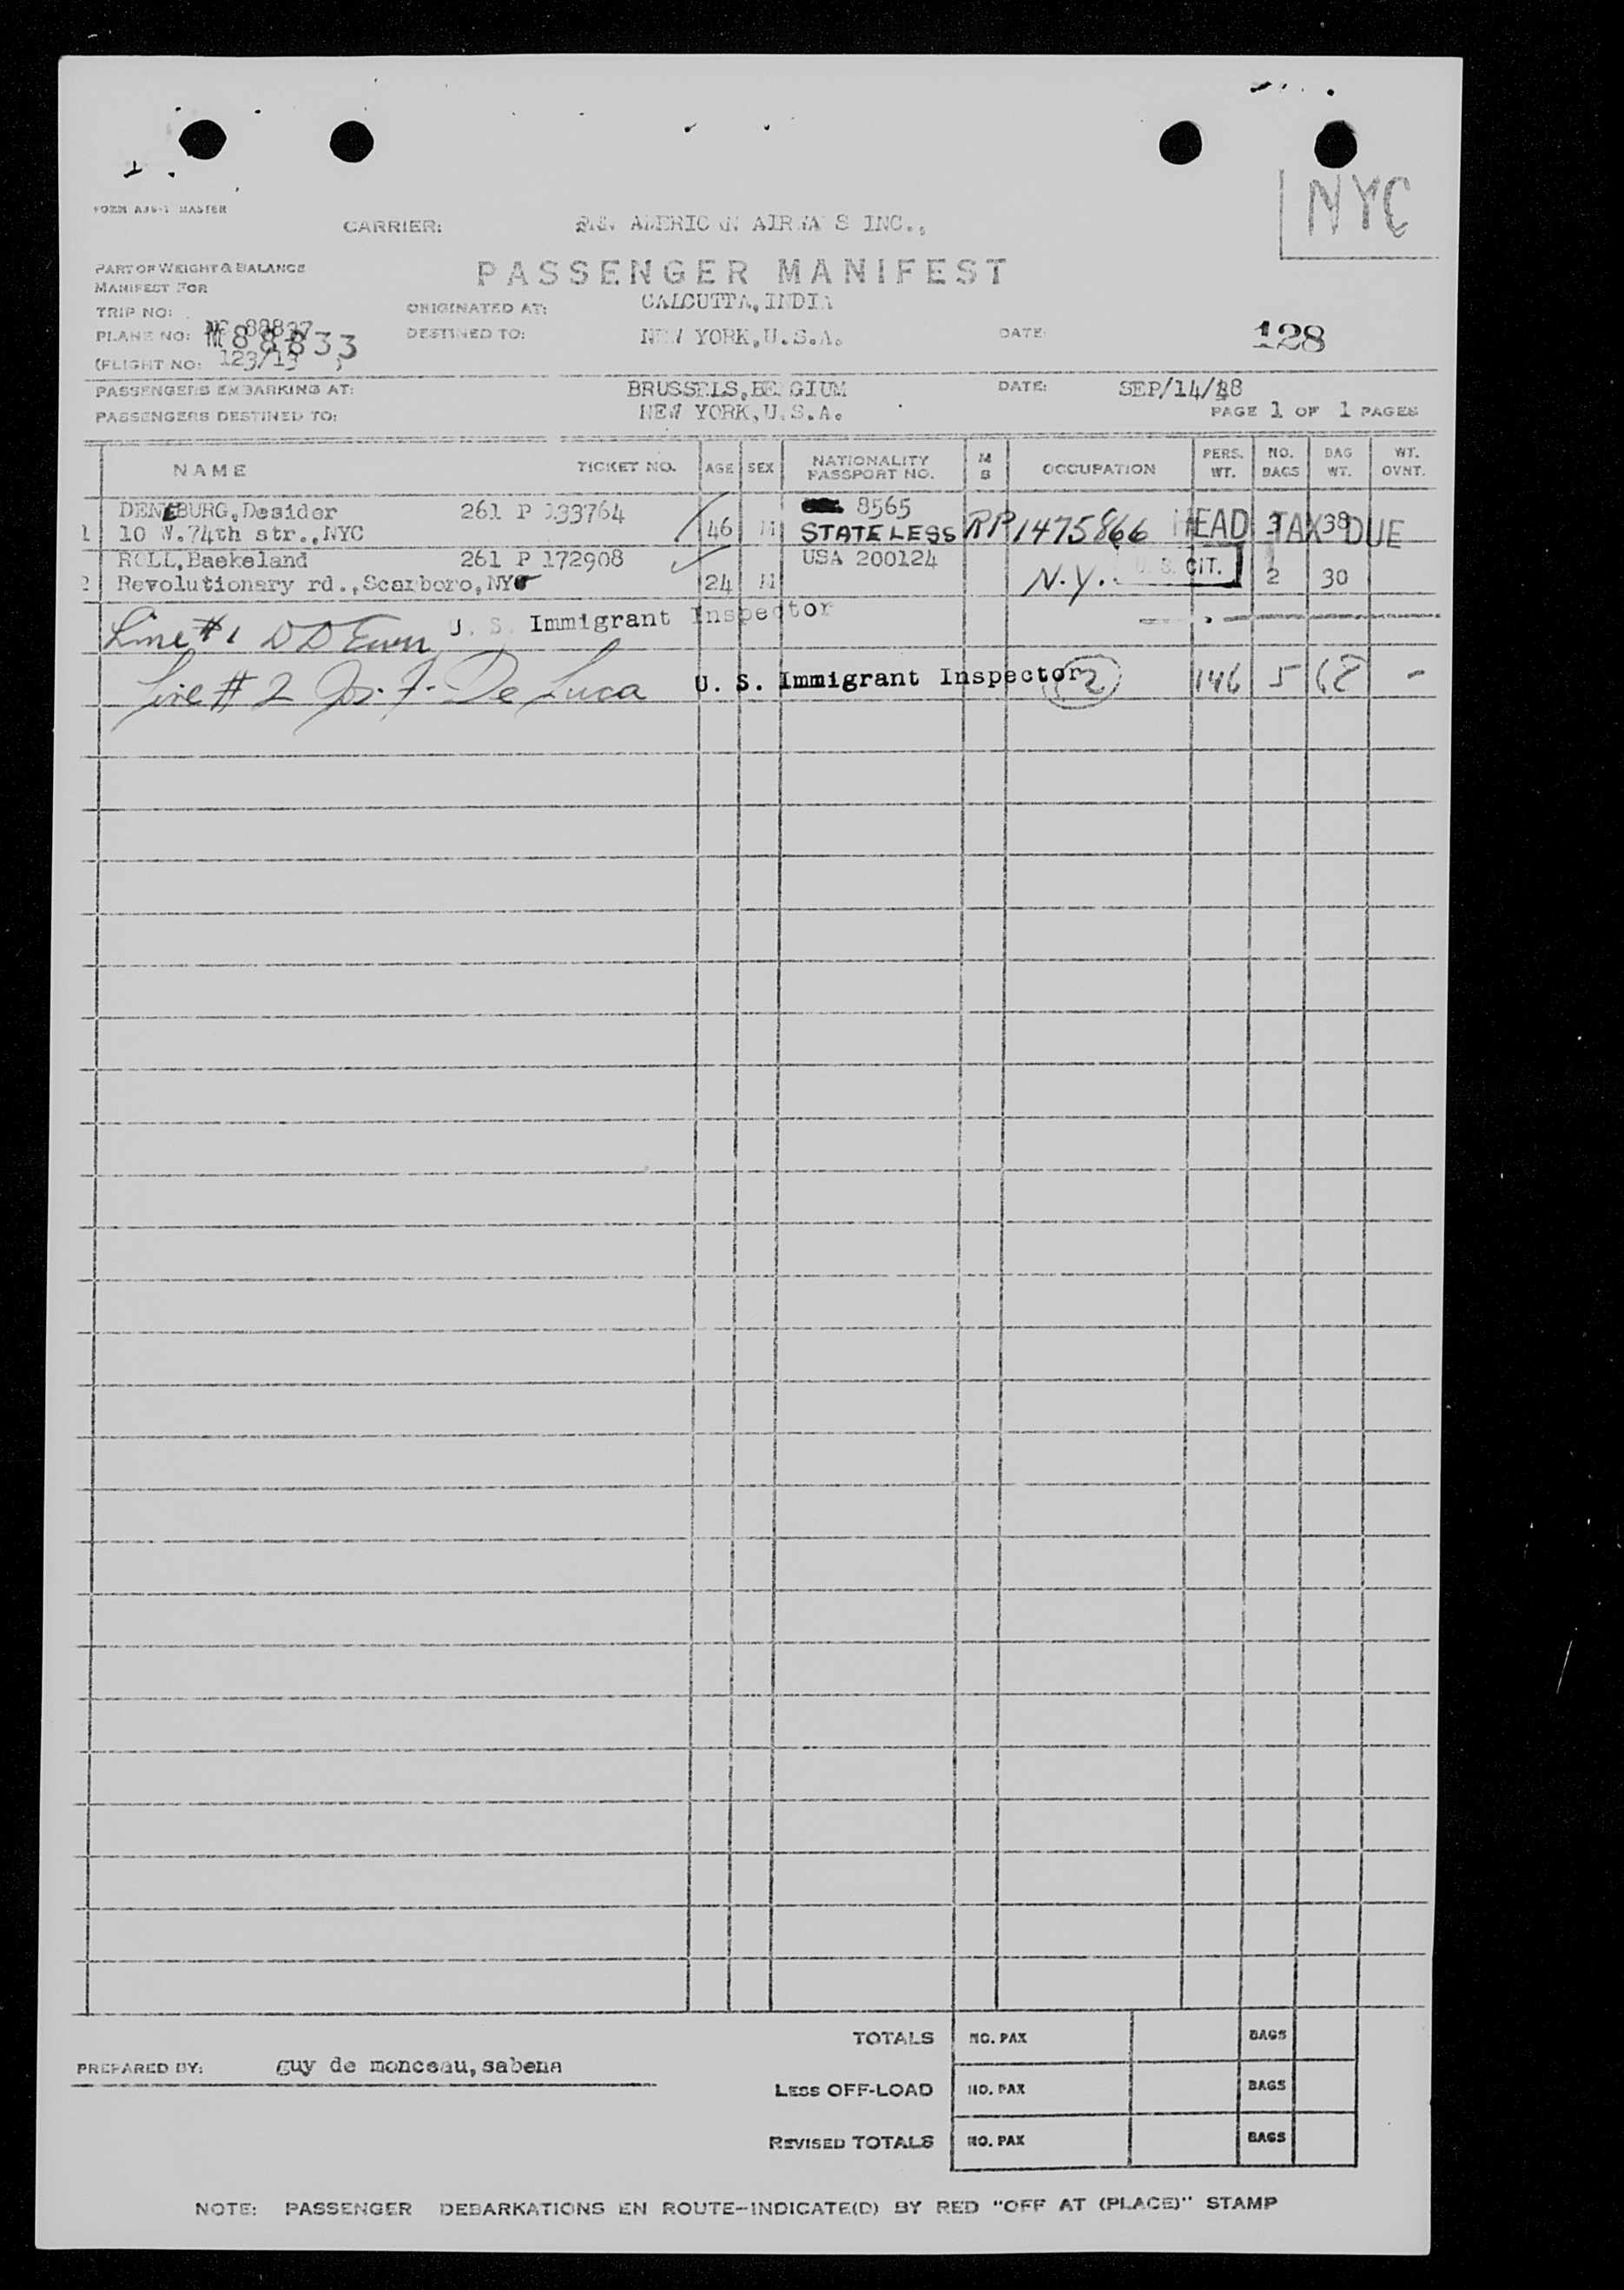 NYC
FORM
MASTER
CARRIER: AIRWAYS INC.,
PART OF WEIGHT & BALANCE
PASSENGER MANIFEST
MANIFEST FOR
TRIP NO: ORIGINATED AT: CALCUTTA, INDIA
PLANE NO: 88833 DESTINED TO: NEW YORK, U.S.A. DATE: 128
(FLIGHT NO: 123/13 )
PASSENGERS EMBARKING AT: BRUSSELS, BELGIUM DATE: SEP/14/48
PASSENGERS DESTINED TO: NEW YORK, U.S.A. PAGE 1 OF 1 PAGES
NAME TICKET NO. AGE SEX NATIONALITY PASSPORT NO. M S OCCUPATION PERS. WT. NO. BAGS BAG WT. WT. OVNT.
DENEBURG, Desider 261 P 133764 8565
1 10 W. 74th str., NYC 46 M STATELESS RP 1475866 HEAD TAX DUE 3 38
ROLL, Baekeland 261 P 172908 USA 200124 U. S. CIT.
2 Revolutionary rd., Scarboro, NY 24 M N.Y. 2 30
Line #1 U. S. Immigrant Inspector
Line #2 Jos. F. De Luca U. S. Immigrant Inspector 2 146 5 68 -
TOTALS NO. PAX BAGS
PREPARED BY: guy de monceau, sabena
LESS OFF-LOAD NO. PAX BAGS
REVISED TOTALS NO. PAX BAGS
NOTE: PASSENGER DEBARKATIONS EN ROUTE-INDICATE(D) BY RED "OFF AT (PLACE)" STAMP